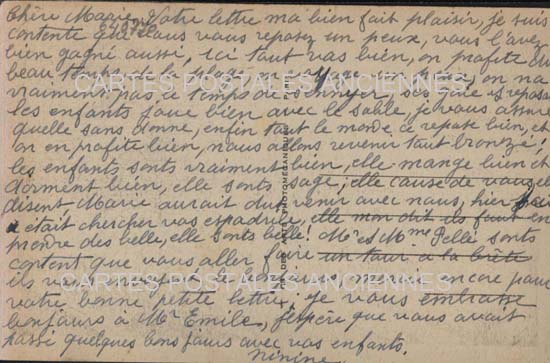 Chère Marie, Votre lettre m'a bien fait plaisir, je suis
contente que vous vous reposez un peux, vous l'avez
bien gagné aussi, ici tout vas bien, on profite du
beau temps
vraiment pas le temps de s'ennuyer
les enfants joue bien avec le sable, je vous assure
quelle sans donne, enfin tout le monde ce repose bien, et
on en profite bien, nous allons revenir tout bronzé,
les enfants sonts vraiment bien, elle mange bien et
dorment bien, elle sonts sage, elle cause de vous, elle
disent Marie aurait du venir avec nous, hier
était chercher vos espadrille, elle mon dit ils faut en
prendre des belle, elle sonts belle! Mr et Mme Pellé sonts
content que vous aller faire un tour à la
ils vous envoyent le bonjours, merci encore pour
votre bonne petite lettre, je vous embrasse
bonjours à Mr Emile, j'espère que vous avait
passé quelques bons jours avec vos enfants.
Ninine
CARTES POSTALES ANCIENNES
CARTES POSTALES ANCIENNES